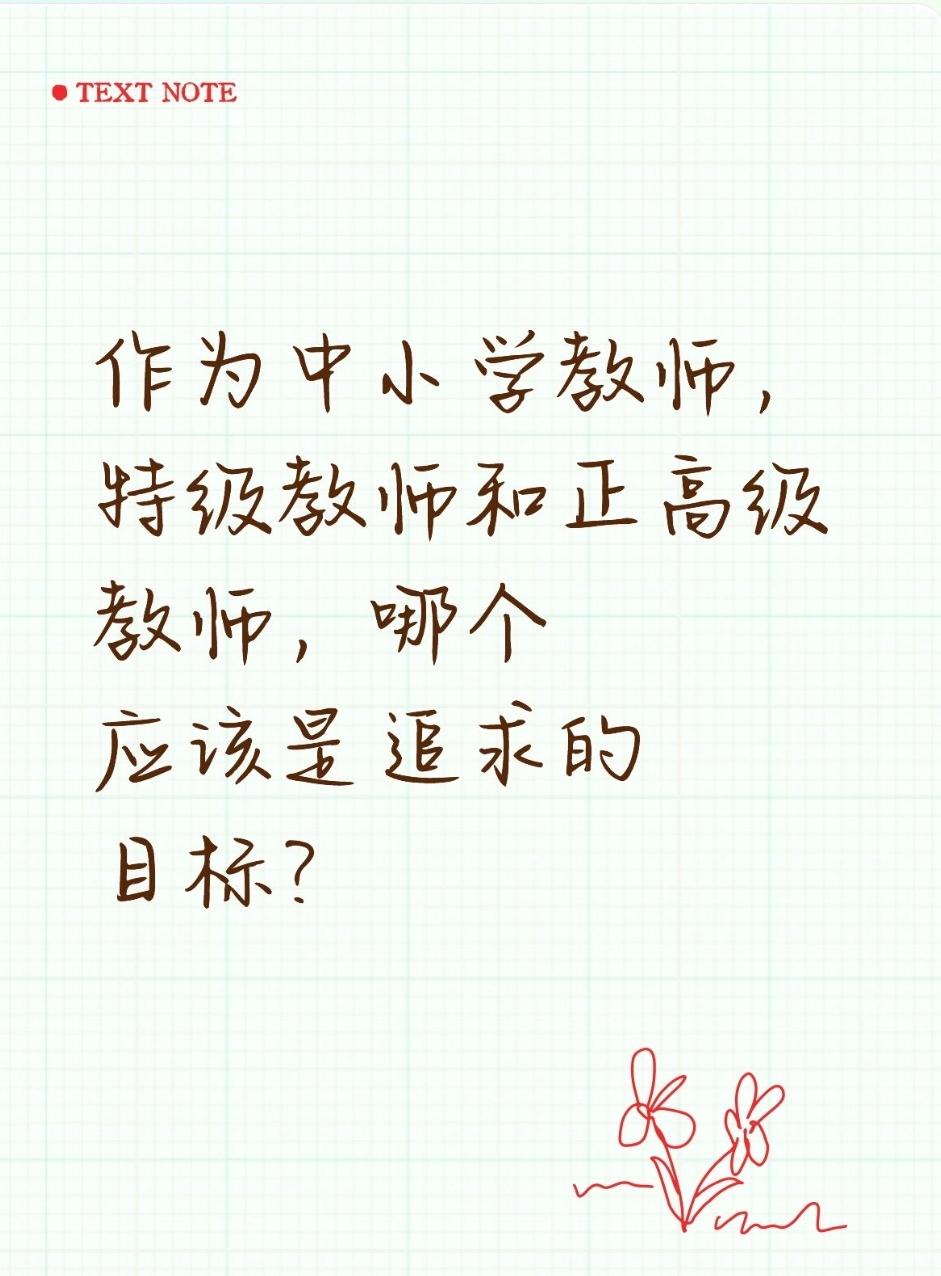 TEXT NOTE
作为中小学教师，
特级教师和正高级
教师，哪个
应该是追求的
目标？